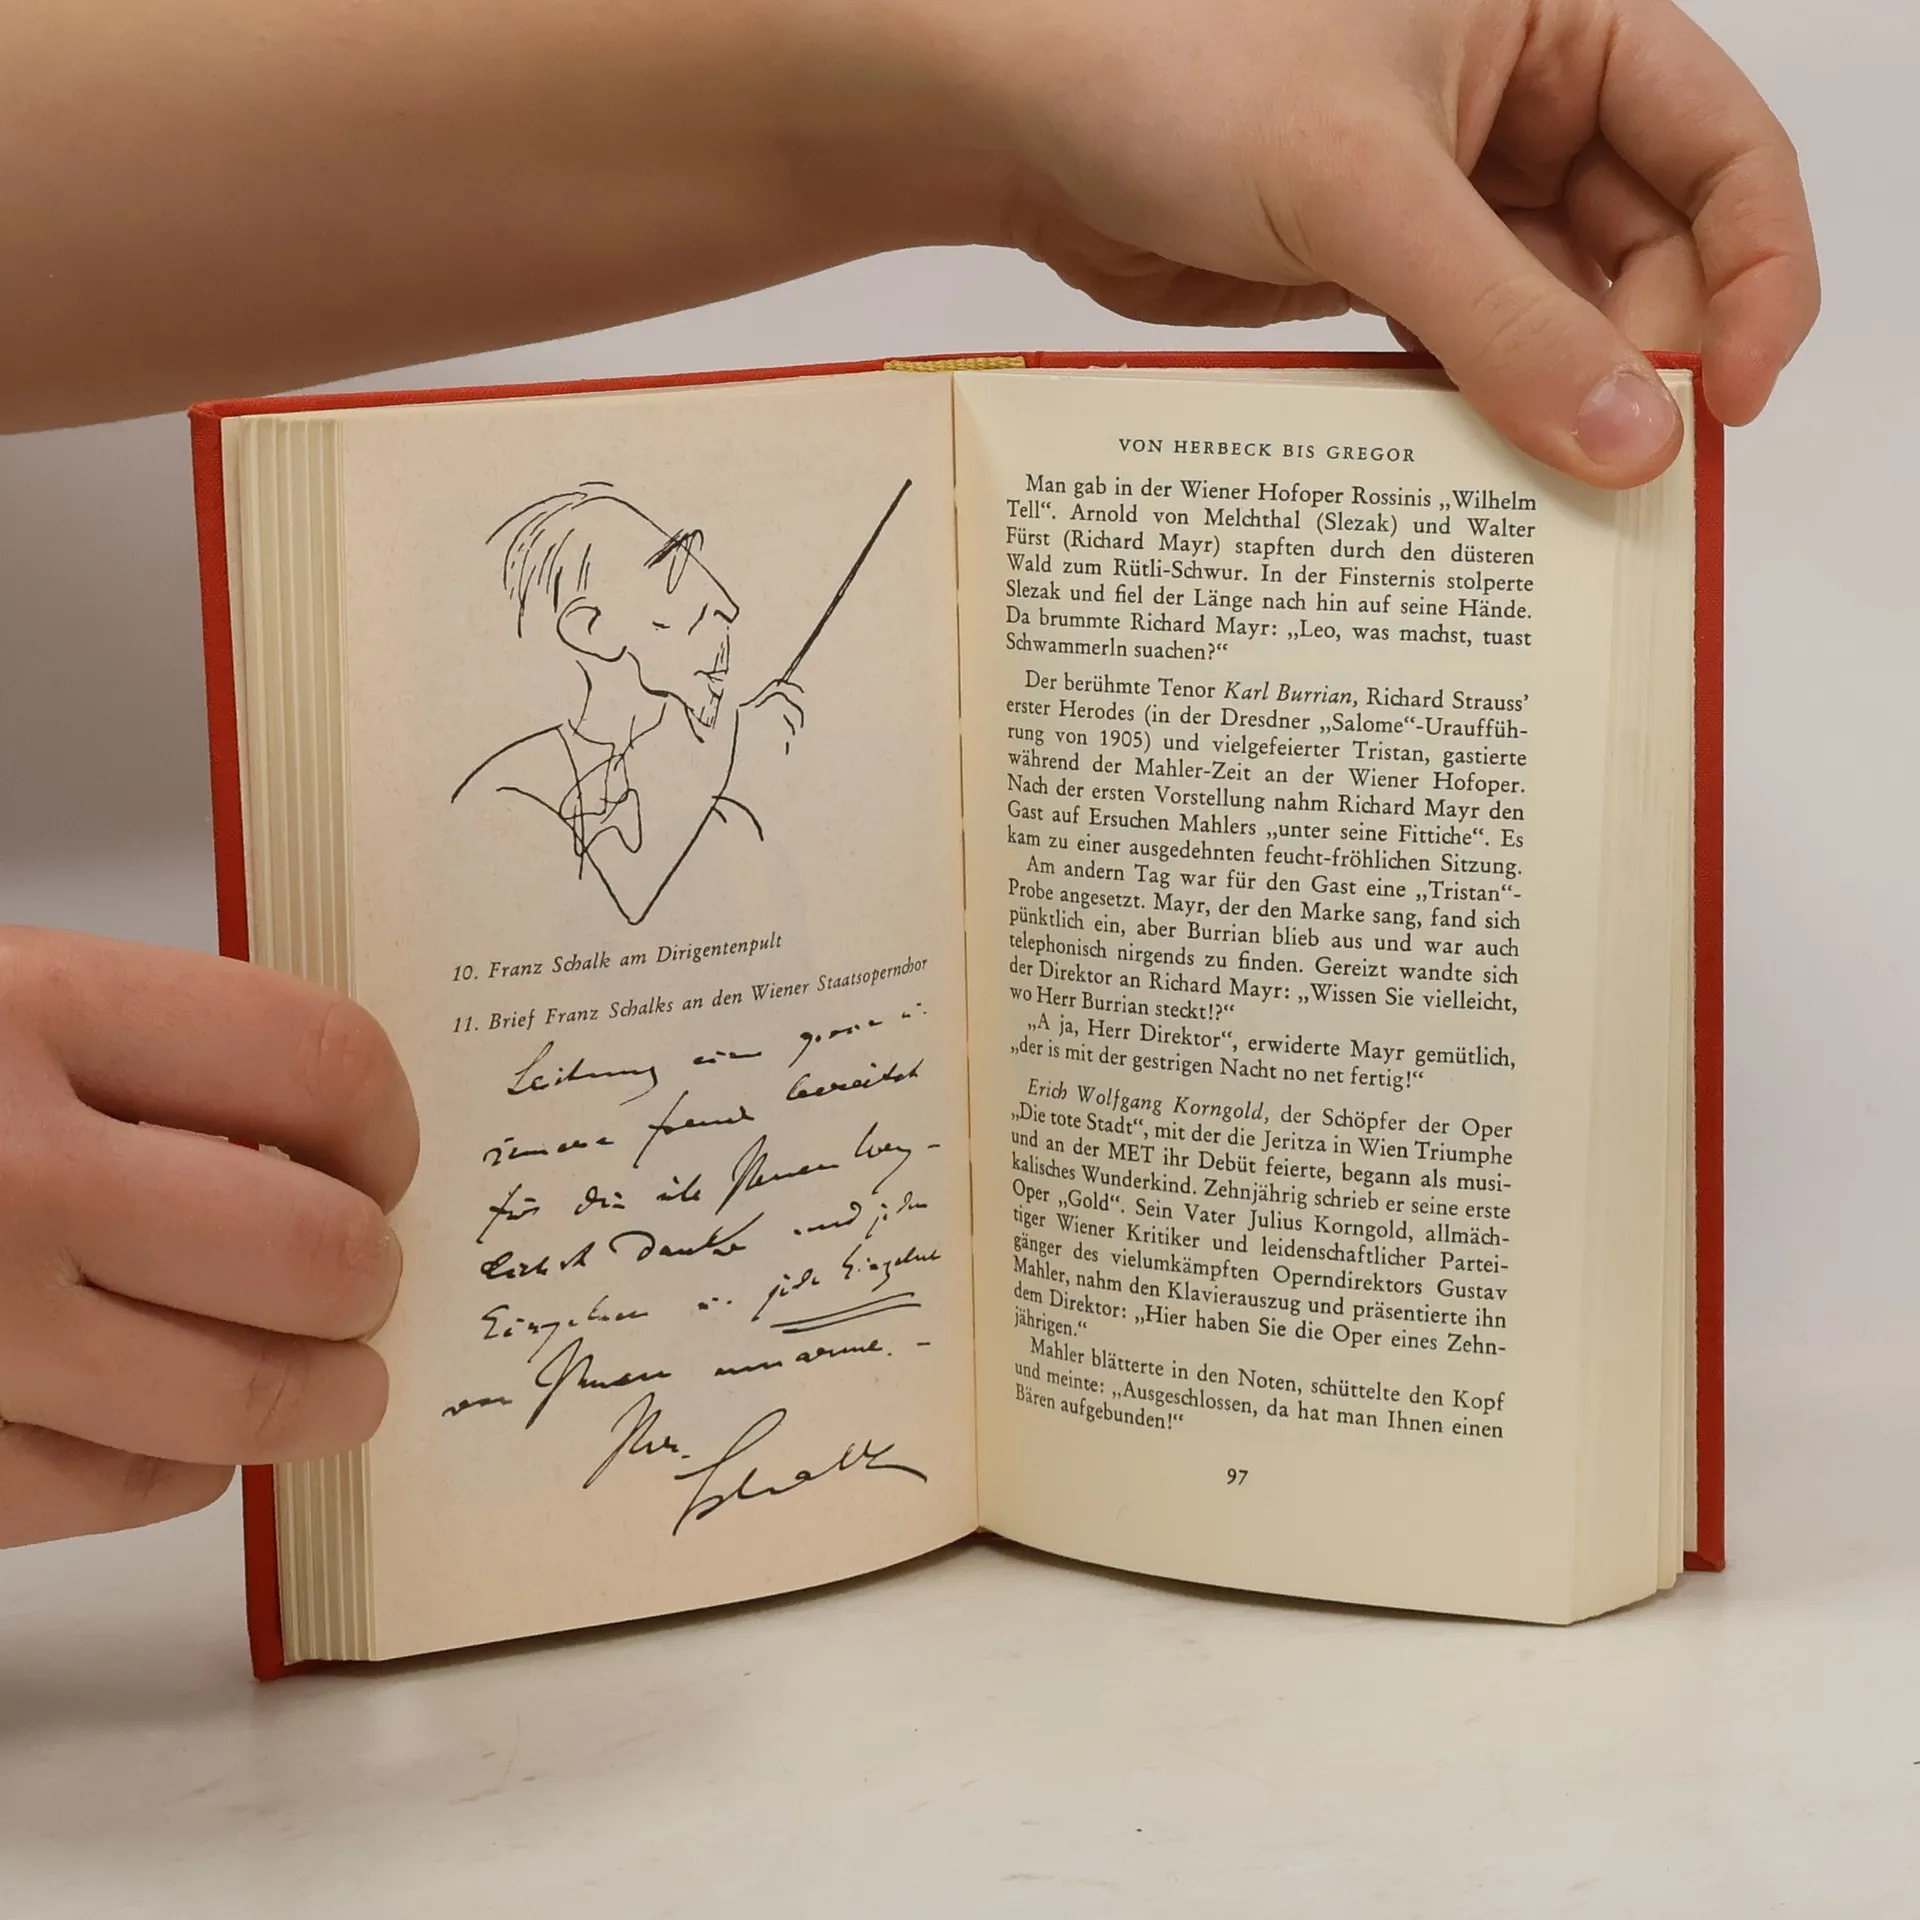 10. Franz Schalk am Dirigentenpult
11. Brief Franz Schalks an den Wiener Staatsopernchor
Leitung eine grosse u.
immense Freude bereitet
für die ich Ihnen
Danke und jeden
Einzelnen u. jede Einzelne
von Ihnen umarme. –
Ihr.
Schalk
VON HERBECK BIS GREGOR
Man gab in der Wiener Hofoper Rossinis „Wilhelm
Tell“. Arnold von Melchthal (Slezak) und Walter
Fürst (Richard Mayr) stapften durch den düsteren
Wald zum Rütli-Schwur. In der Finsternis stolperte
Slezak und fiel der Länge nach hin auf seine Hände.
Da brummte Richard Mayr: „Leo, was machst, tuast
Schwammerln suachen?“
Der berühmte Tenor Karl Burrian, Richard Strauss’
erster Herodes (in der Dresdner „Salome“-Urauffüh-
rung von 1905) und vielgefeierter Tristan, gastierte
während der Mahler-Zeit an der Wiener Hofoper.
Nach der ersten Vorstellung nahm Richard Mayr den
Gast auf Ersuchen Mahlers „unter seine Fittiche“. Es
kam zu einer ausgedehnten feucht-fröhlichen Sitzung.
Am andern Tag war für den Gast eine „Tristan“-
Probe angesetzt. Mayr, der den Marke sang, fand sich
pünktlich ein, aber Burrian blieb aus und war auch
telephonisch nirgends zu finden. Gereizt wandte sich
der Direktor an Richard Mayr: „Wissen Sie vielleicht,
wo Herr Burrian steckt!?“
„A ja, Herr Direktor“, erwiderte Mayr gemütlich,
„der is mit der gestrigen Nacht no net fertig!“
Erich Wolfgang Korngold, der Schöpfer der Oper
„Die tote Stadt“, mit der die Jeritza in Wien Triumphe
und an der MET ihr Debüt feierte, begann als musi-
kalisches Wunderkind. Zehnjährig schrieb er seine erste
Oper „Gold“. Sein Vater Julius Korngold, allmäch-
tiger Wiener Kritiker und leidenschaftlicher Partei-
gänger des vielumkämpften Operndirektors Gustav
Mahler, nahm den Klavierauszug und präsentierte ihn
dem Direktor: „Hier haben Sie die Oper eines Zehn-
jährigen.“
Mahler blätterte in den Noten, schüttelte den Kopf
und meinte: „Ausgeschlossen, da hat man Ihnen einen
Bären aufgebunden!“
97